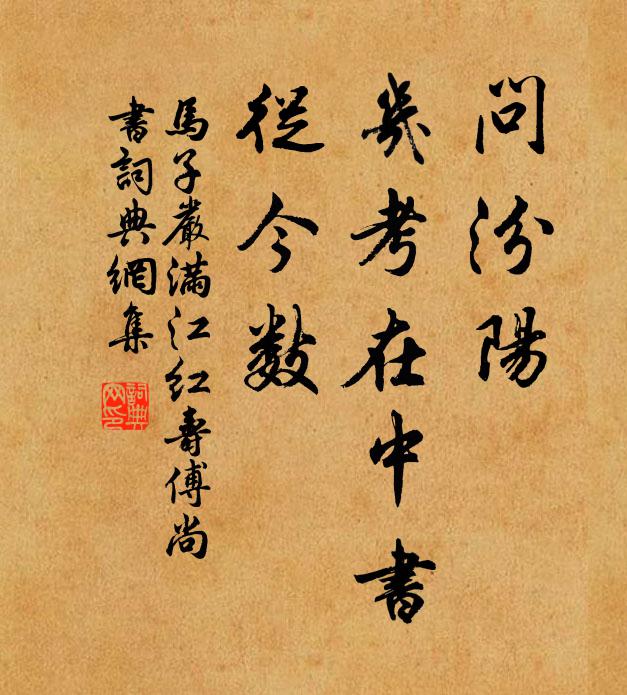 問汾陽
幾考在中書
從今數
馬子嚴滿江紅壽傅尚
書詞典網集
詞典
网印